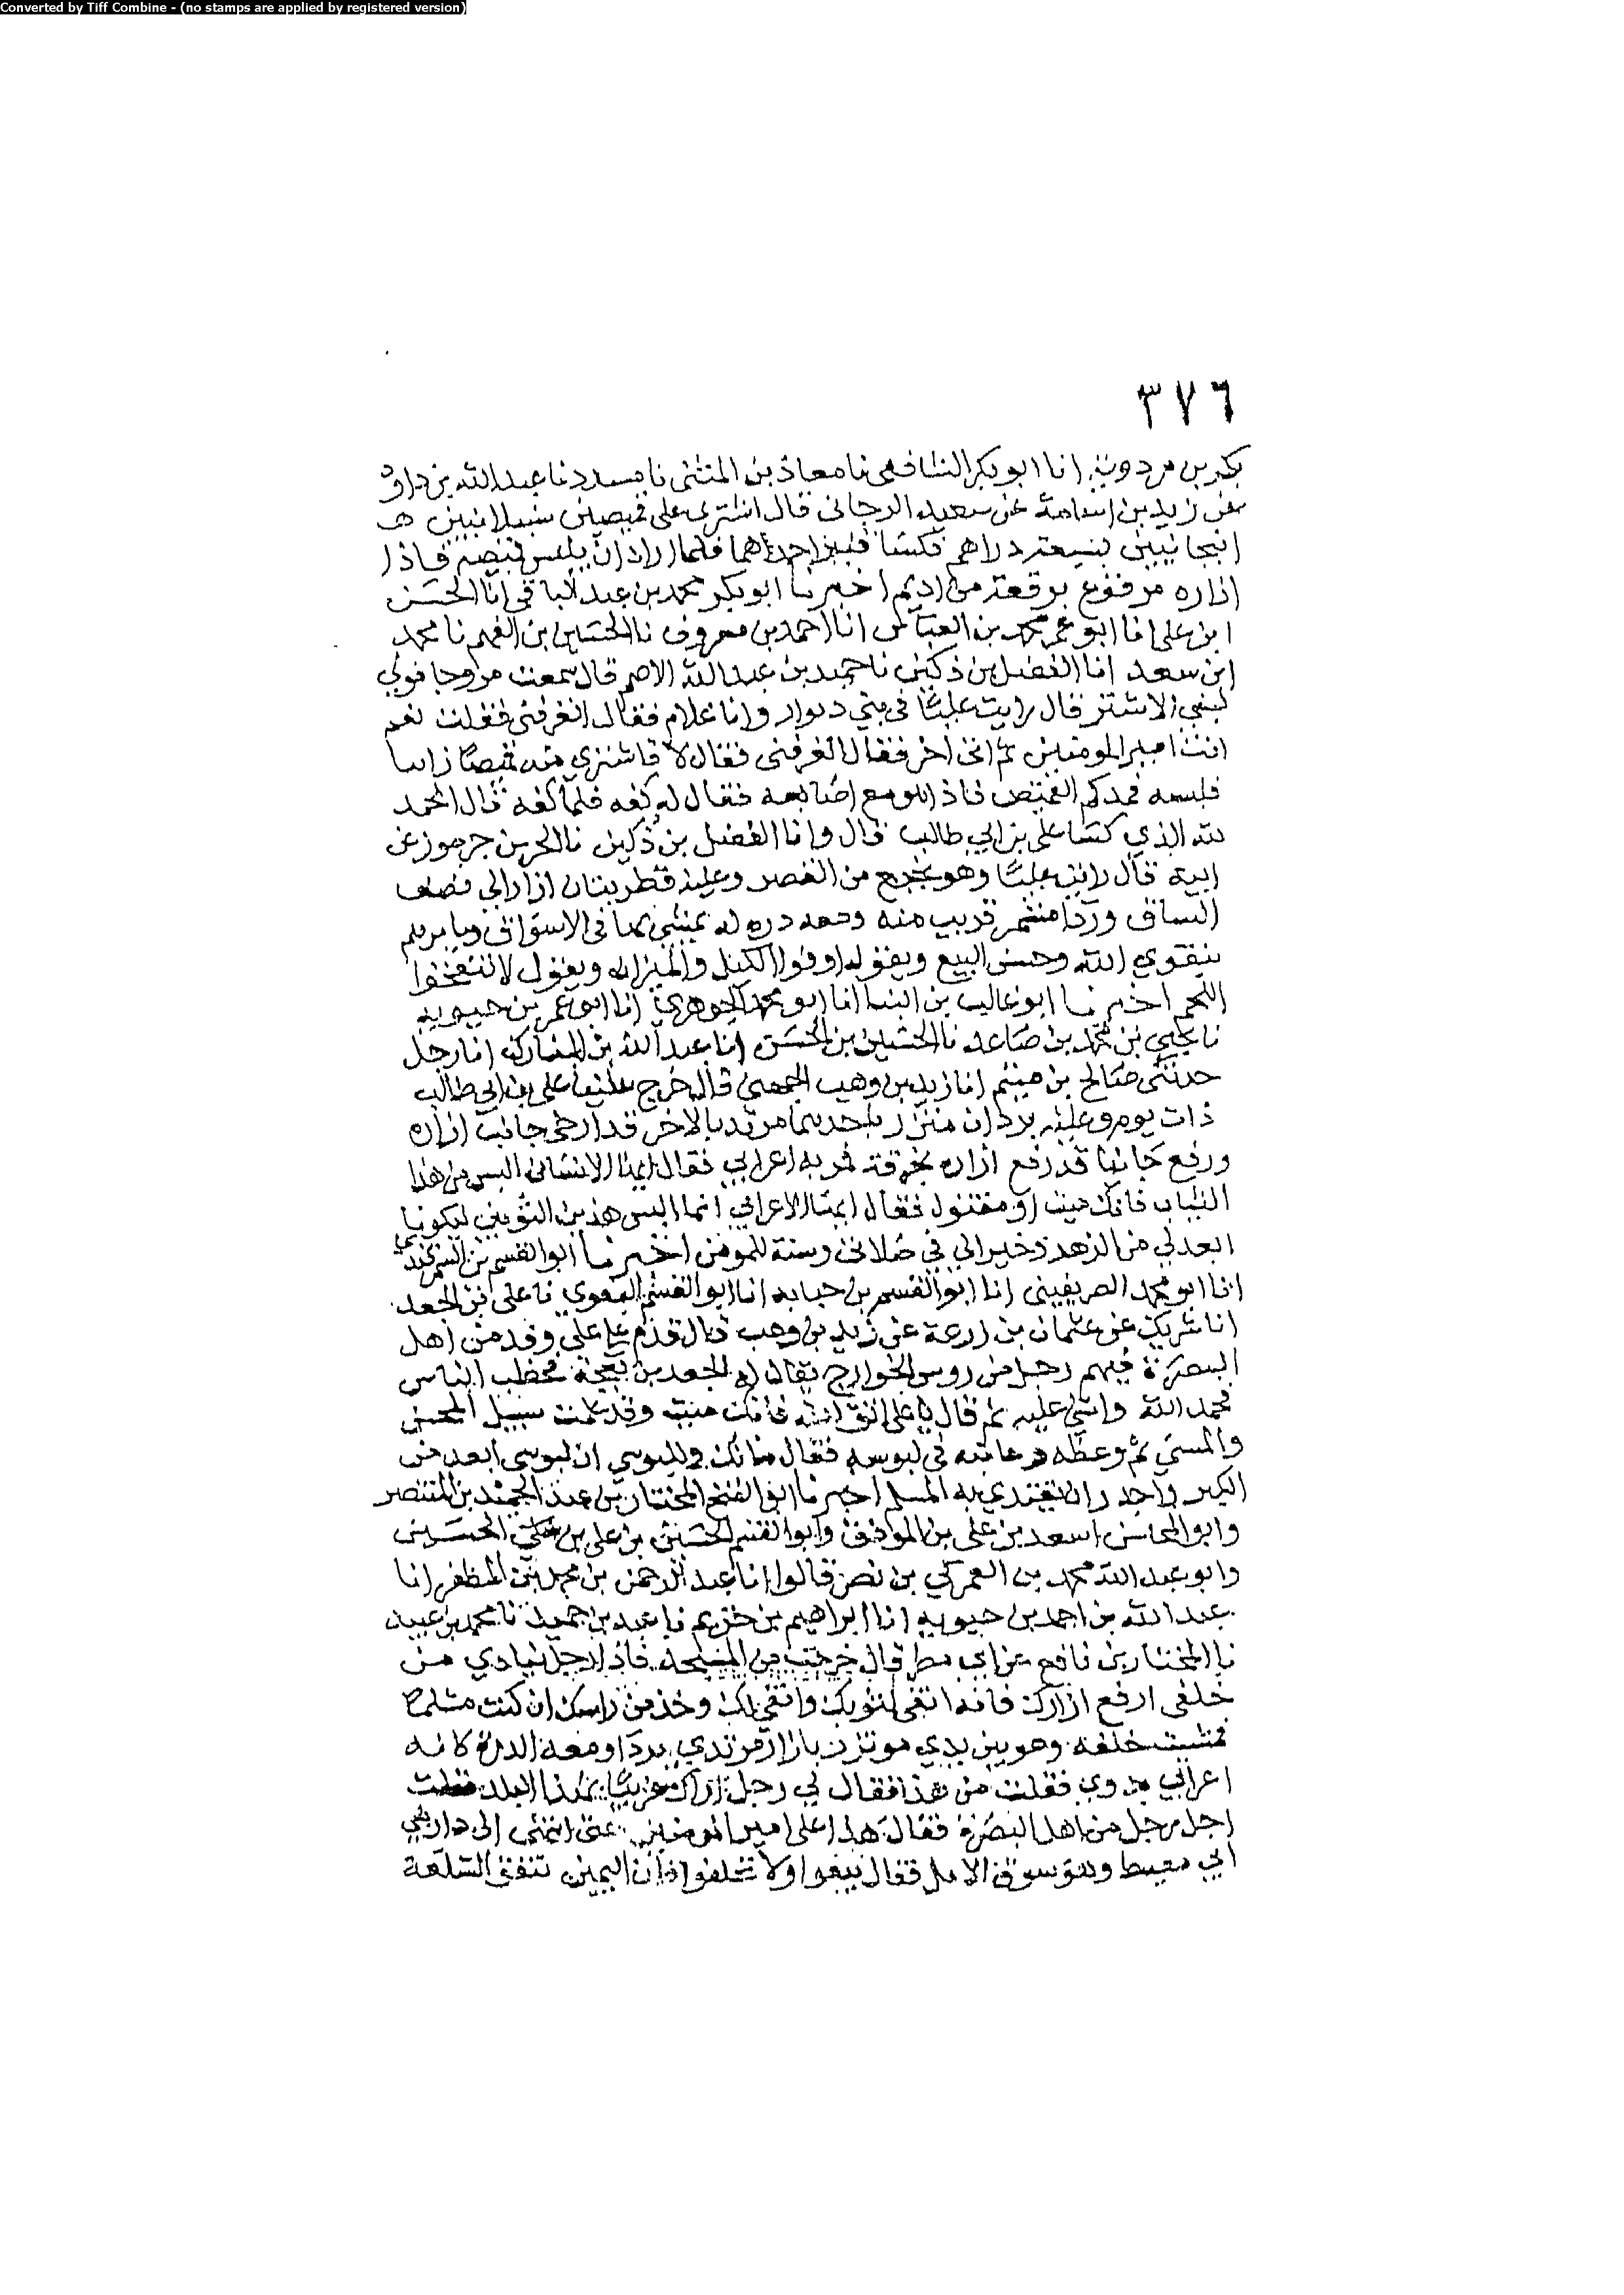 Converted by Tiff Combine - (no stamps are applied by registered version)
٣٧٦
بكر بن مردويه انا ابو بكر الشافعي نا معاذ بن المثنى نا مسدد نا عبد الله بن داود
عن زيد بن اسامة عن سعيد الرجاني قال اشترى علي قميصين سنبلانيين
انبجانيين بسبعة دراهم فكسا قنبر احداهما فلما اراد ان يلبس قميصه فاذا
ازاره مرفوع برقعة من اديم اخبرنا ابو بكر محمد بن عبد الباقي انا الحسن
ابن علي انا ابو عمر محمد بن العباس انا احمد بن معروف نا الحسين بن الفهم نا محمد
ابن سعد انا الفضل بن دكين نا حميد بن عبد الله الاصم قال سمعت فروخا مولى
لبني الاشتر قال رايت عليا في بني ديوار وانا غلام فقال اتعرفني فقلت نعم
انت امير المومنين ثم اتى اخر فقال اتعرفني فقال لا فاشترى منه قميصا زابيا
فلبسه فمد كم القميص فاذا هو مع اصابعه فقال له كفه فلما كفه قال الحمد
لله الذي كسا علي بن ابي طالب قال وانا الفضل بن دكين نا الحر بن جرموز عن
ابيه قال رايت عليا وهو يخرج من القصر وعليه قطريتان ازار الى نصف
الساق وردا مشمر قريب منه ومعه درة له يمشي بها في الاسواق ويامرهم
بتقوى الله وحسن البيع ويقول اوفوا الكيل والميزان ويقول لا تنفخوا
اللحم اخبرنا ابو غالب بن البنا انا ابو محمد الجوهري انا ابو عمر بن حيويه
نا يحيى بن محمد بن صاعد نا الحسين بن الحسن انا عبد الله بن المبارك انا رجل
حدثني صالح بن ميثم انا زيد بن وهب الجهني قال خرج علينا علي بن ابي طالب
ذات يوم وعليه بردان متزر باحدهما مرتد بالاخر قد ارخى جانب ازاره
ورفع جانبا قد رفع ازاره بخرقة فمر به اعرابي فقال ايها الانسان البس من هذا
الثياب فانك ميت او مقتول فقال ايها الاعرابي انما البس هذين الثوبين ليكونا
ابعد لي من الزهد وخيرا لي في صلاتي وسنة للمومن اخبرنا ابو القسم بن السمرقندي
انا ابو محمد الصريفيني انا ابو القسم بن حبابه انا ابو القسم البغوي نا علي بن الجعد
انا شريك عن عثمان بن ابي زرعة عن زيد بن وهب قال قدم على علي وفد من اهل
البصرة فيهم رجل من روس الخوارج يقال له الجعد بن بعجة فخطب الناس
فحمد الله واثنى عليه ثم قال يا علي اتق الله فانك ميت وقد علمت سبيل المحسن
والمسي ثم وعظه وعاتبه في لبوسه فقال مالك وللبوسي ان لبوسي ابعد من
الكبر واجدر ان يقتدي به المسلم اخبرنا ابو الفتح المختار بن عبد الحميد بن المنتصر
وابو المحاسن اسعد بن علي بن الموفق وابو القسم الحسين بن علي بن الحسين
وابو عبد الله محمد بن العمركي بن نصر قالوا انا عبد الرحمن بن محمد بن المظفر انا
عبد الله بن احمد بن حيويه انا ابراهيم بن خزيم نا عبد بن حميد نا محمد بن عبيد
نا المختار بن نافع عن ابي مطر قال خرجت من المسجد فاذا رجل ينادي من
خلفي ارفع ازارك فانه اتقى لثوبك وانقى لك وخذ من راسك ان كنت مسلما
فمشيت خلفه وهو بين يدي موتزر بازار مرتدي بردا ومعه الدرة كانه
اعرابي بدوي فقلت من هذا فقال لي رجل اراك غريبا بهذا البلد فقلت
اجل رجل من اهل البصرة فقال هذا علي امير المومنين حتى انتهى الى دار بني
ابي معيط وهو سوق الابل فقال بيعوا ولا تحلفوا فان اليمين تنفق السلعة